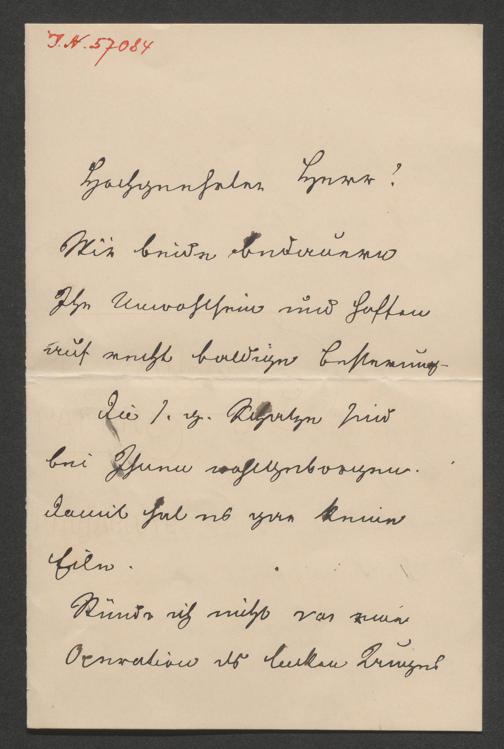 I. N. 57084
Hochgeehrter Herr!
Wir beide bedauern
Ihr Unwohlsein und hoffen
auf recht baldige Besserung.
Die s. g. Schätze sind
bei Ihnen wohlgeborgen.
Damit hat es gar keine
Eile.
Stünde ich nicht vor einer
Operation des linken Auges